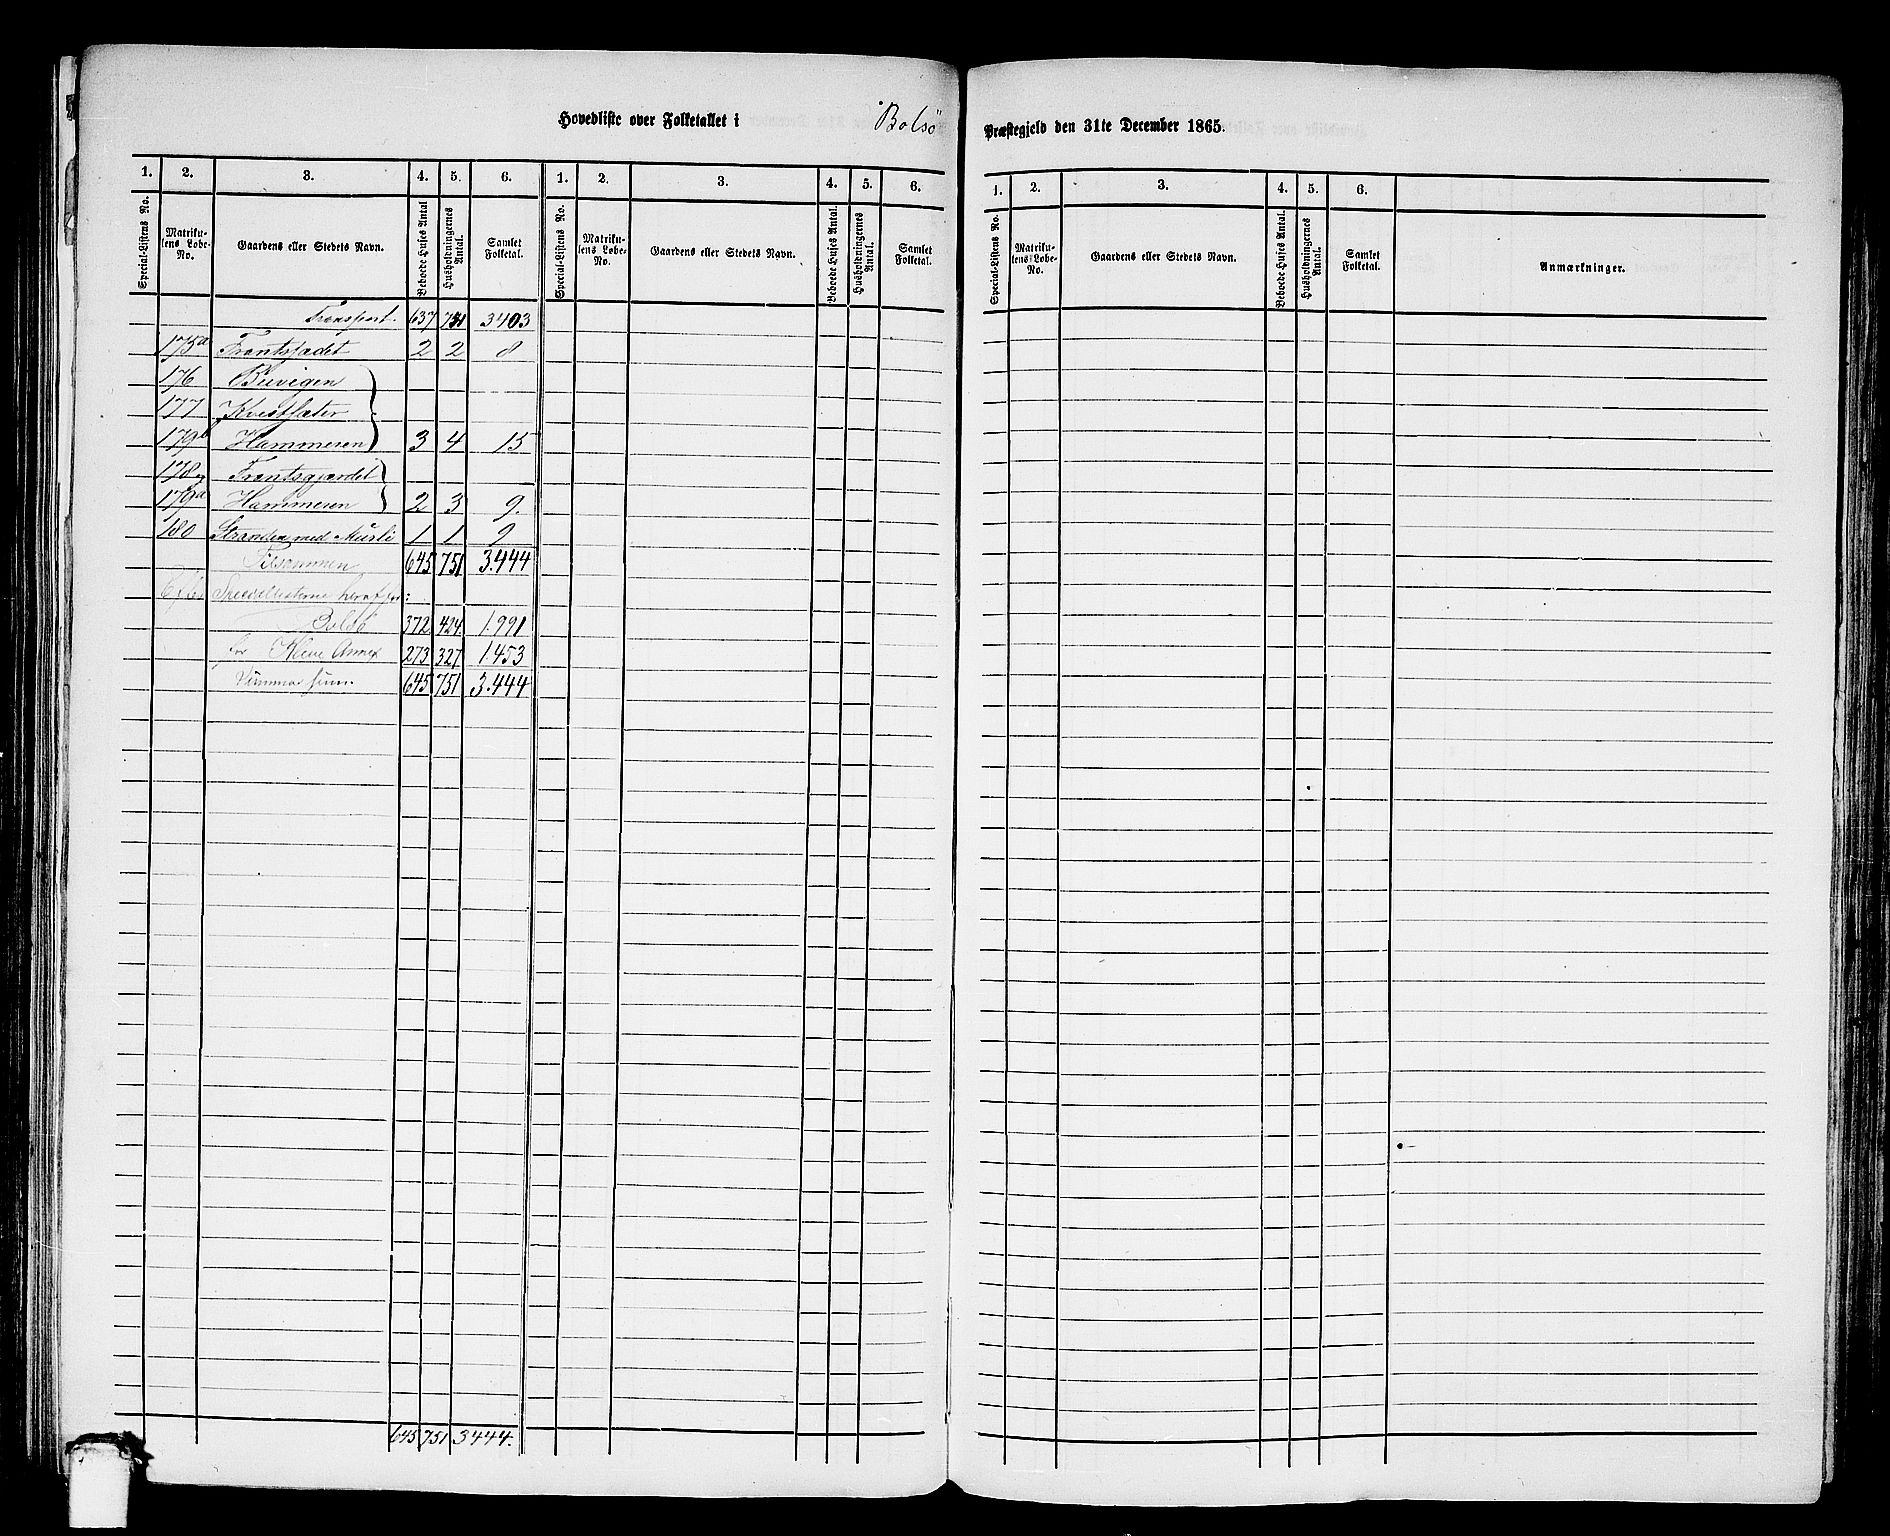 Hovedliste over Folketallet i Bolsö Præstegjeld den 31te December 1865.
1. 2. 3. 4. 5. 6. 1. 2. 3. 4. 5. 6. 1. 2. 3. 4. 5. 6.
Special-Listens No. Matrikulens Løbe-No. Gaardens eller Stedets Navn. Beboede Huses Antal Husholdningernes Antal. Samlet Folketal. Special-Listens No. Matrikulens Løbe-No. Gaardens eller Stedets Navn. Beboede Huses Antal. Husholdningernes Antal. Samlet Folketal. Special-Listens No. Matrikulens Løbe-No. Gaardens eller Stedets Navn. Beboede Huses Antal. Husholdningernes Antal. Samlet Folketal. Anmærkninger.
Transport. 637 751 3403
175a 2 2 8
176
177
179b Hammeren 3 4 15
178
179a Hammeren 2 3 9.
180 Stranden med 1 1 9
Tilsammen 645 751 3.444
Efter Speciallisterne heraf for:
Bolsö 372 424. 1.991
for Kleve Annex 273 327. 1.453
645 751 3.444
645 751 3444.